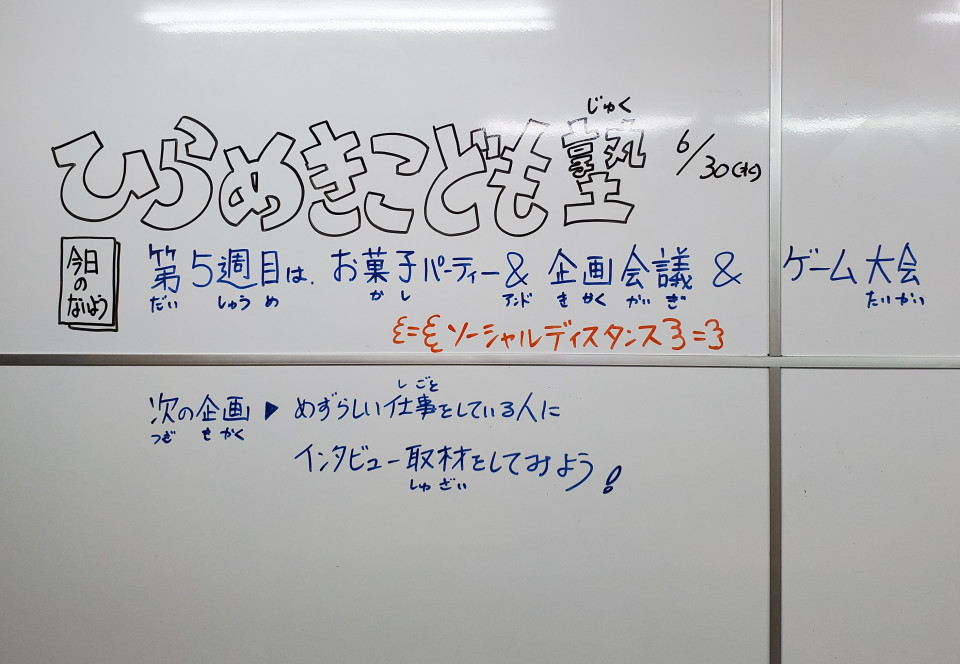 じゅく
ひらめきこども塾 6/30(水)
今日
の
ないよう
第5週目は、お菓子パーティー& 企画会議 & ゲーム大会
だい しゅう め か し アンド き かく かい ぎ たいかい
ソーシャルディスタンス
しごと
次の企画▶めずらしい仕事をしている人に
つぎ きかく
インタビュー取材をしてみよう!
しゅざい